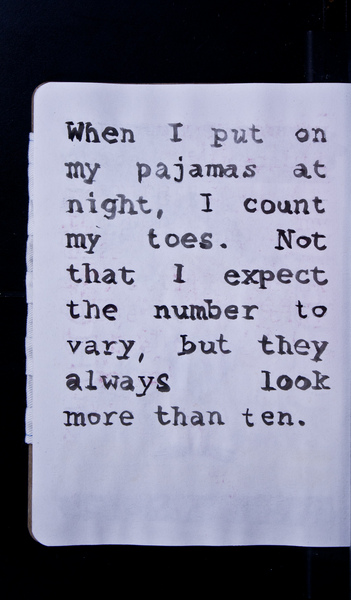 When I put on
my pajamas at
night, I count
my toes. Not
that I expect
the number to
vary, but they
always look
more than ten.